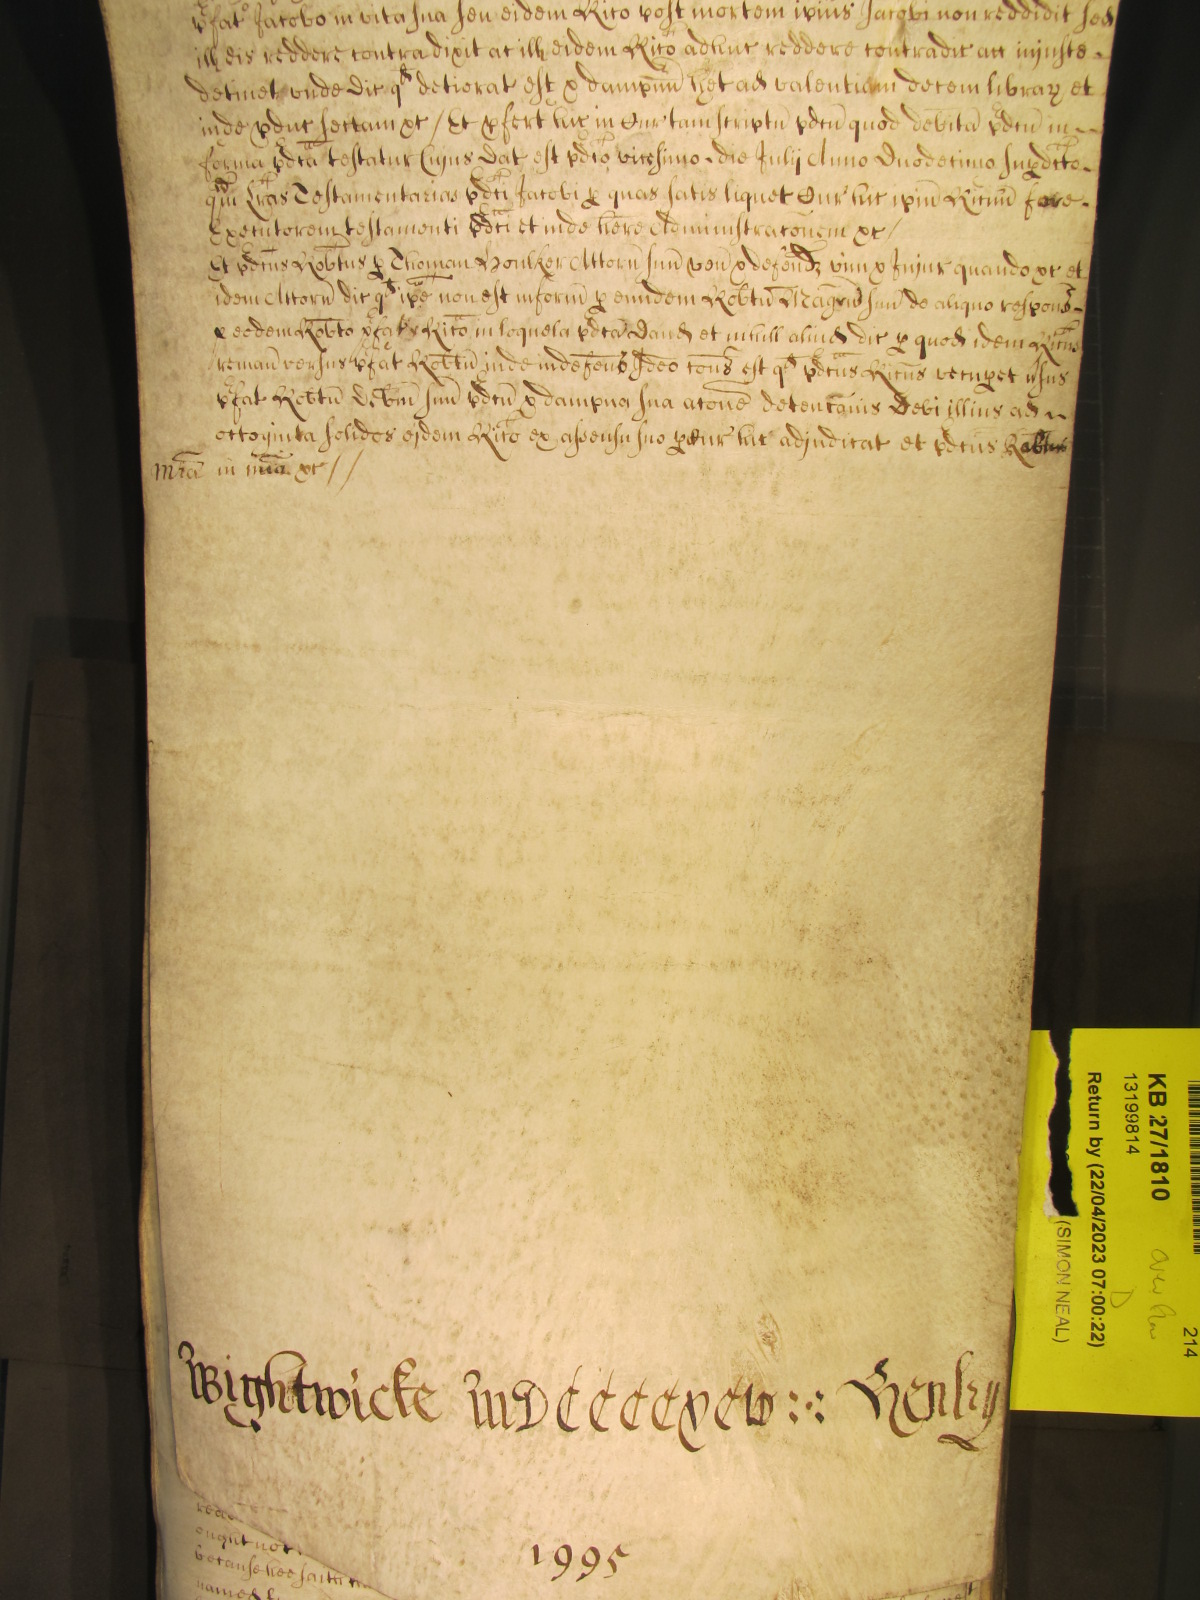 p̄fat Jacobo in vita sua seu eidem Ric̄o post mortem ip̄ius Jacobi non reddidit sed
ill eis reddere contradixit ac ill eidem Ric̄o adhuc reddere contradic̄ ac injuste
detinet unde dic̄ qd̄ deteriorat est & dampnū h̄et ad valentiam decem librar̄ et
inde p̄duc̄ sectam &c / Et p̄fert hic in Cur̄ tam scriptū p̄dc̄ū quod debitū p̄dc̄ū in
forma p̄dc̄a testatur Cujus dat est p̄dc̄o vicesimo die Julij Anno Duodecimo sup̄dc̄o
qm̄ l̄ras Testamentarias p̄dc̄i Jacobi p quas satis liquet Cur̄ hic ip̄m Ric̄um fore
Executorem testamenti p̄dc̄i et inde h̄ere Administrac̄onem &c /
Et p̄dc̄us Rob̄tus p Thomam Attorn̄ suū ven̄ & defend̄ vim & Injur̄ quando &c et
idem Attorn̄ dic̄ qd̄ ip̄e non est informat̄ p eundem Rob̄tū Maḡrum suū de aliquo respons̄
p eodem Rob̄to p̄fat Ric̄o in loquela p̄dc̄a dand̄ et nihill aliud dic̄ p quod idem Ric̄us
reman̄ versus p̄fat Rob̄tū inde indefens̄ Ideo cons̄ est qd̄ p̄dc̄us Ric̄us recup̄et v̄sus
p̄fat Rob̄tū deb̄m suū p̄dc̄ū & dampna sua occ̄one detenc̄onis debi illius ad
octoginta solidos eidem Ric̄o ex assensu suo p Cur̄ hic adjudicat̄ et p̄dc̄us Rob̄tus
Mia in mia &c //
Wightwicke MDCCCCXCV Henley
1995
ought not
because hee saith
named
KB 27/1810
13199814
Return by (22/04/2023 07:00:22)
(SIMON NEAL)
D
214